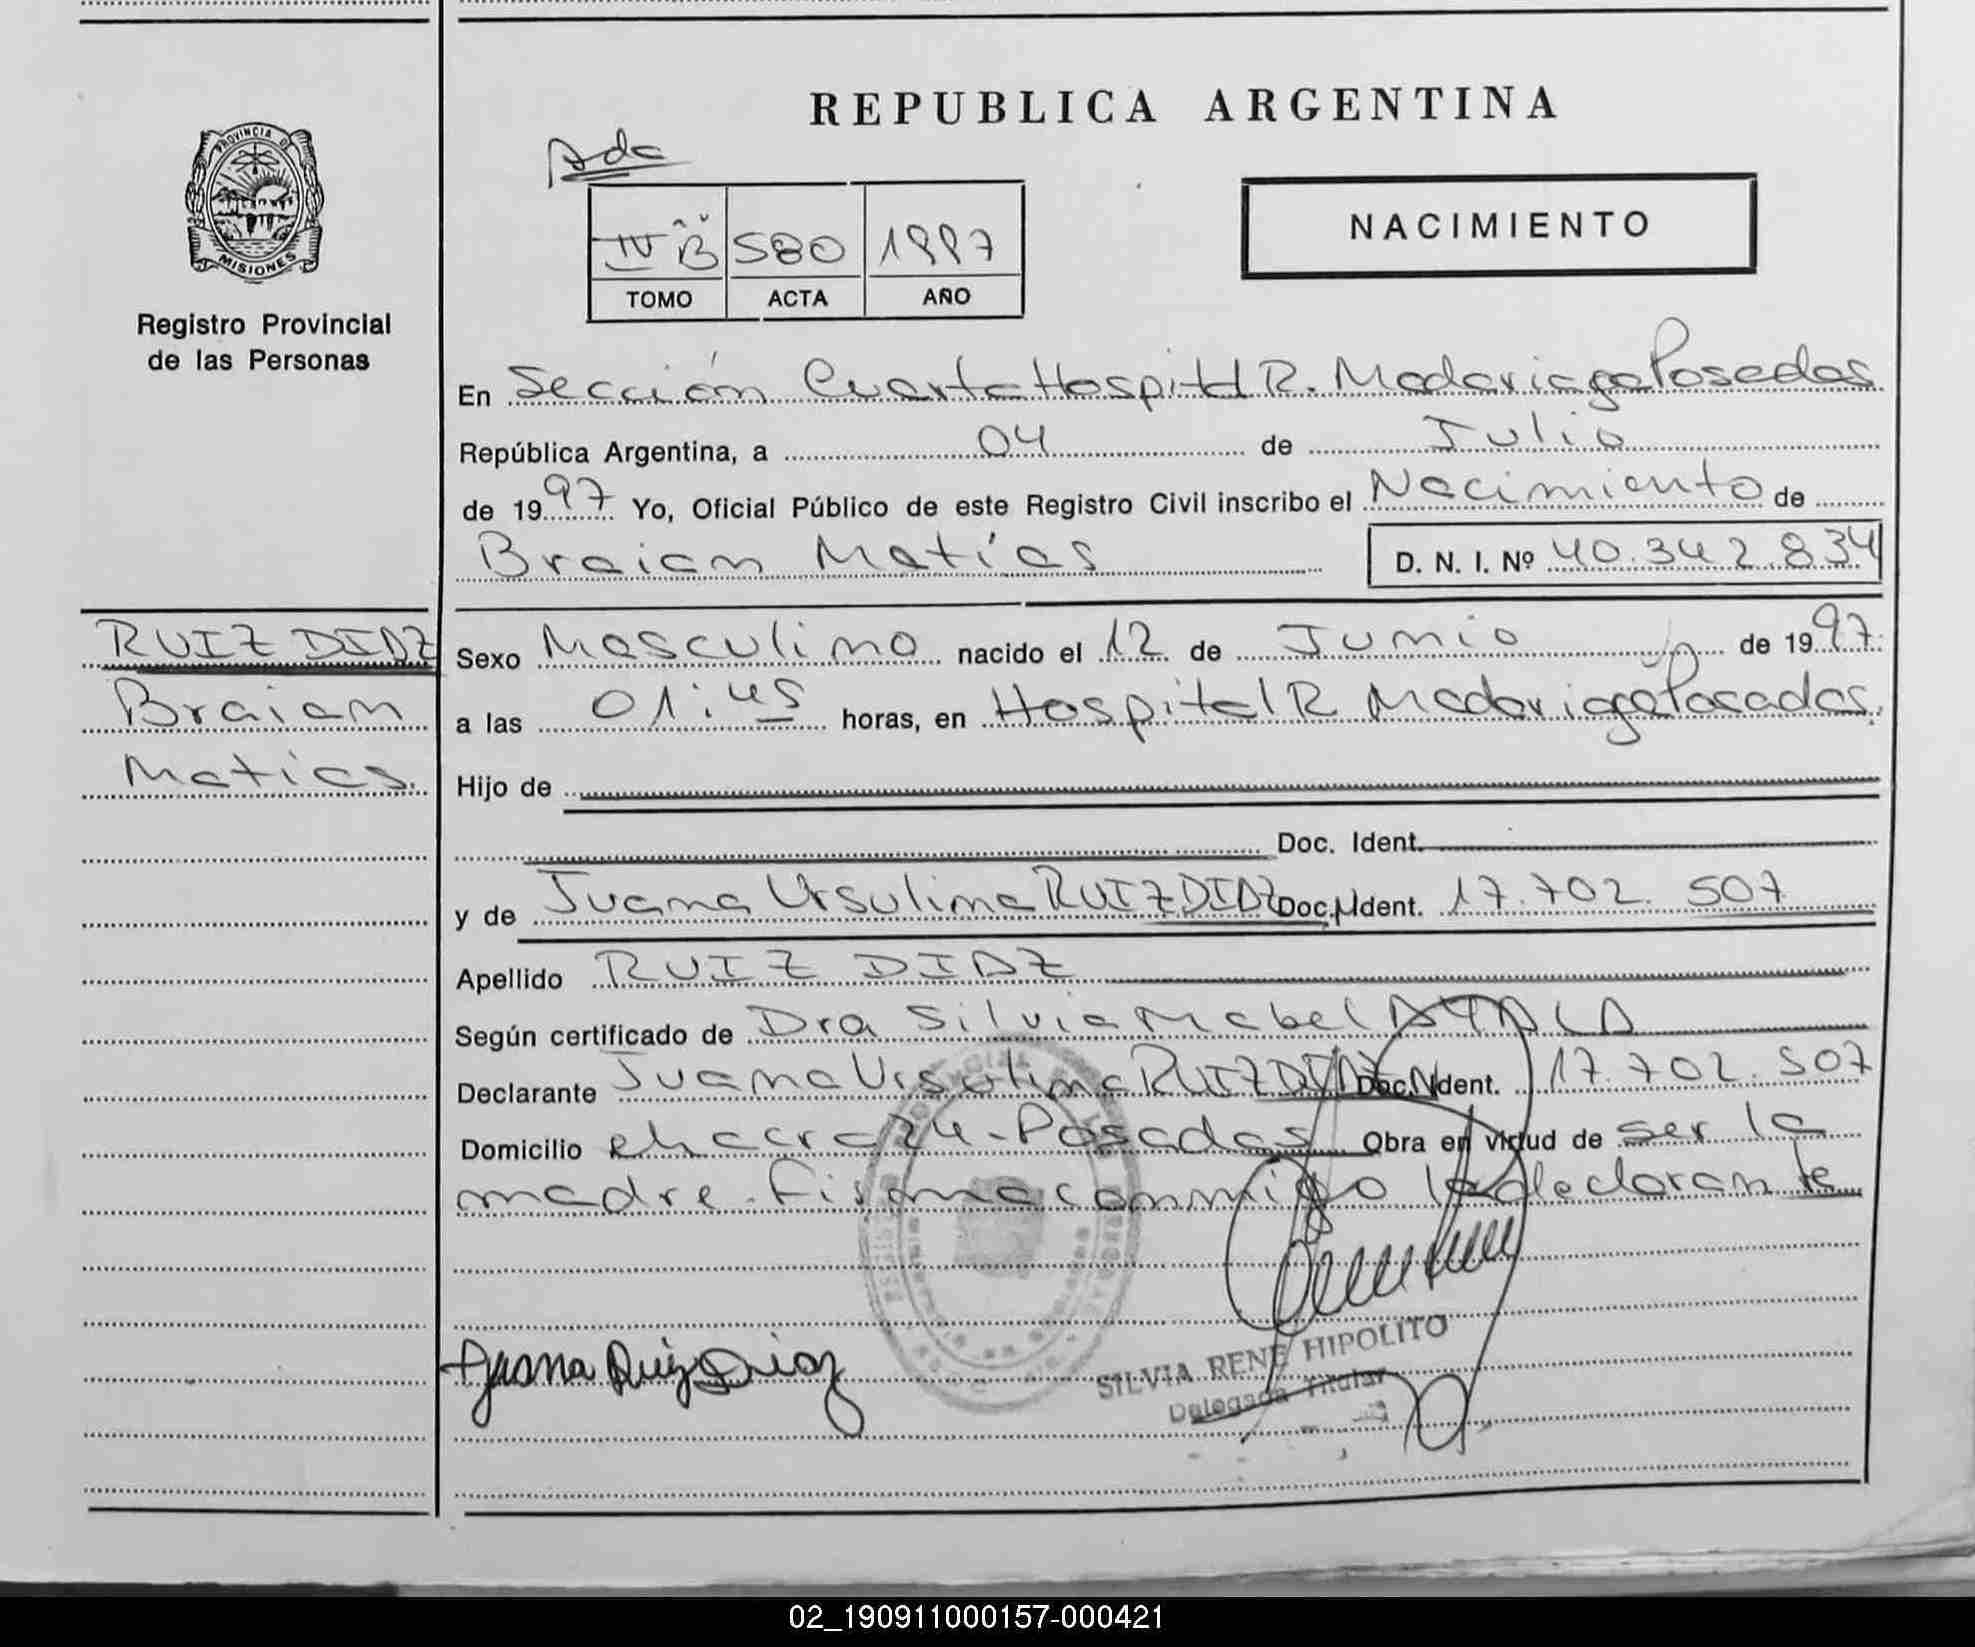 REPUBLICA ARGENTINA
PROVINCIA DE
MISIONES
Registro Provincial
de las Personas
NACIMIENTO
IV "B" 580 1997
TOMO ACTA AÑO
En Sección Cuarta Hospital R. Madariaga Posadas
República Argentina, a 04 de Julio
de 1997 Yo, Oficial Público de este Registro Civil inscribo el Nacimiento de
Braian Matías D. N. I. Nº 40.342.834
RUIZ DIAZ
Braian
Matias.
Sexo Masculino nacido el 12 de Junio de 1997
a las 01:45 horas, en Hospital R Madariaga Posadas.
Hijo de
Doc. Ident.
y de Juana Ursulina RUIZ DIAZ Doc. Ident. 17.702.507
Apellido RUIZ DIAZ
Según certificado de Dra Silvia Mabel AYALA
Declarante Juana Ursulina RUIZ DIAZ Doc. Ident. 17.702.507
Domicilio chacra 24 - Posadas Obra en virtud de ser la
madre. Firma conmigo la declarante
Juana Ruiz Diaz
SILVIA RENE HIPOLITO
Delegada Titular
02_190911000157-000421